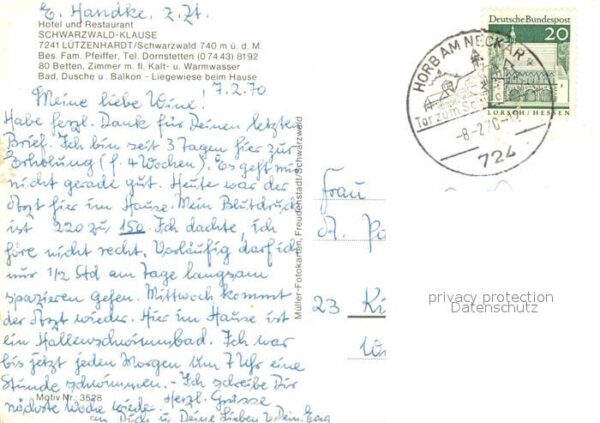 E. Handke, z. Zt.
Hotel und Restaurant
SCHWARZWALD-KLAUSE
7241 LÜTZENHARDT/Schwarzwald 740 m ü. d. M.
Bes. Fam. Pfeiffer, Tel. Dornstetten (0 74 43) 8192
80 Betten, Zimmer m. fl. Kalt- u. Warmwasser
Bad, Dusche u. Balkon - Liegewiese beim Hause
7.2.70
Meine liebe Wine!
Habe herzl. Dank für Deinen letzten
Brief. Ich bin seit 3 Tagen hier zur
Erholung (f. 4 Wochen). Es geht mir
nicht gerade gut. Heute war der
Arzt hier im Hause. Mein Blutdruck
ist 220 zu 150. Ich dachte, ich
höre nicht recht. Vorläufig darf ich
nur 1/2 Std am Tage langsam
spazieren gehen. Mittwoch kommt
der Arzt wieder. Hier im Hause ist
ein Hallenschwimmbad. Ich war
bis jetzt jeden Morgen um 7 Uhr eine
Stunde schwimmen. - Ich schreibe Dir
Motiv Nr. 3528
nächste Woche wieder. Herzl. Grüsse
an Dich u. Deine Lieben v. Dein.
Müller-Fotokarten, Freudenstadt/Schwarzwald
Deutsche Bundespost
20
LORSCH/HESSEN
HORB AM NECKAR
Tor zum
-8-2.70-
724
Frau
A.
23
privacy protection
Datenschutz